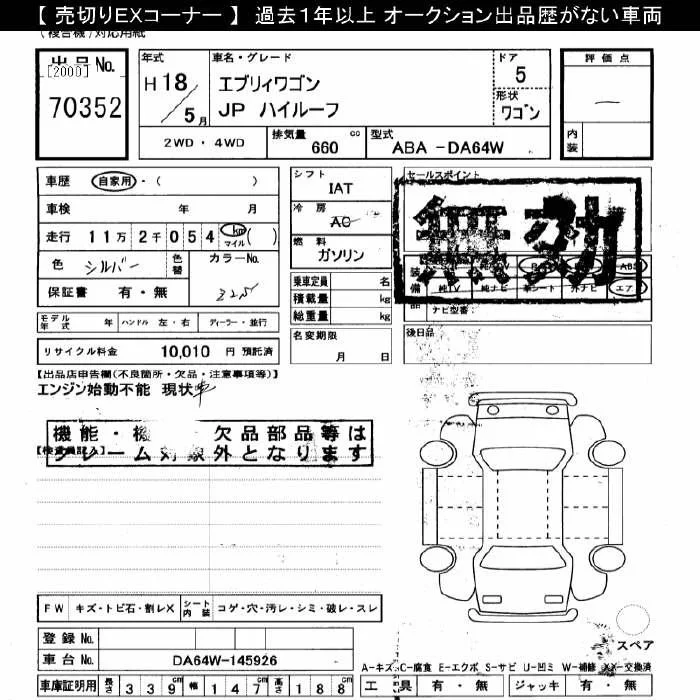 【 売切りEXコーナー 】 過去1年以上 オークション出品歴がない車両
(複合機)対応用紙
出品No.
[2000]
70352
年式
H 18 / 5 月
車名・グレード
エブリィワゴン
JP ハイルーフ
ドア
5
形状
ワゴン
評価点
内装
2WD ・ 4WD
排気量 660 cc
型式 ABA -DA64W
車歴 自家用 ・ ( )
車検 年 月
走行 11万 2千 0 5 4 km マイル ( )
色 シルバー 色替 カラーNo.
保証書 有 ・ 無
シフト
IAT
冷房
AC
燃料
ガソリン
乗車定員 名
積載量 kg
総重量 kg
名変期限
月 日
セールスポイント
無効
装備品
ABS
純TV 純ナビ 革シート 外ナビ エア
ナビ型番:
後日品
モデル年式 年 ハンドル 左・右 ディーラー・並行
リサイクル料金 10,010 円 預託済
【出品店申告欄(不良箇所・欠品・注意事項等)】
エンジン始動不能 現状車
機能・機 欠品部品等は
クレーム対象外となります
FW キズ・トビ石・割レX シート内装 コゲ・穴・汚レ・シミ・破レ・スレ
スペア
登録 No.
車台 No. DA64W-145926
A-キズ C-腐食 E-エクボ S-サビ U-凹ミ W-補修 XX-交換済
車庫証明用 長さ 339 cm 幅 147 cm 高さ 188 cm
工具 有 ・ 無 ジャッキ 有 ・ 無